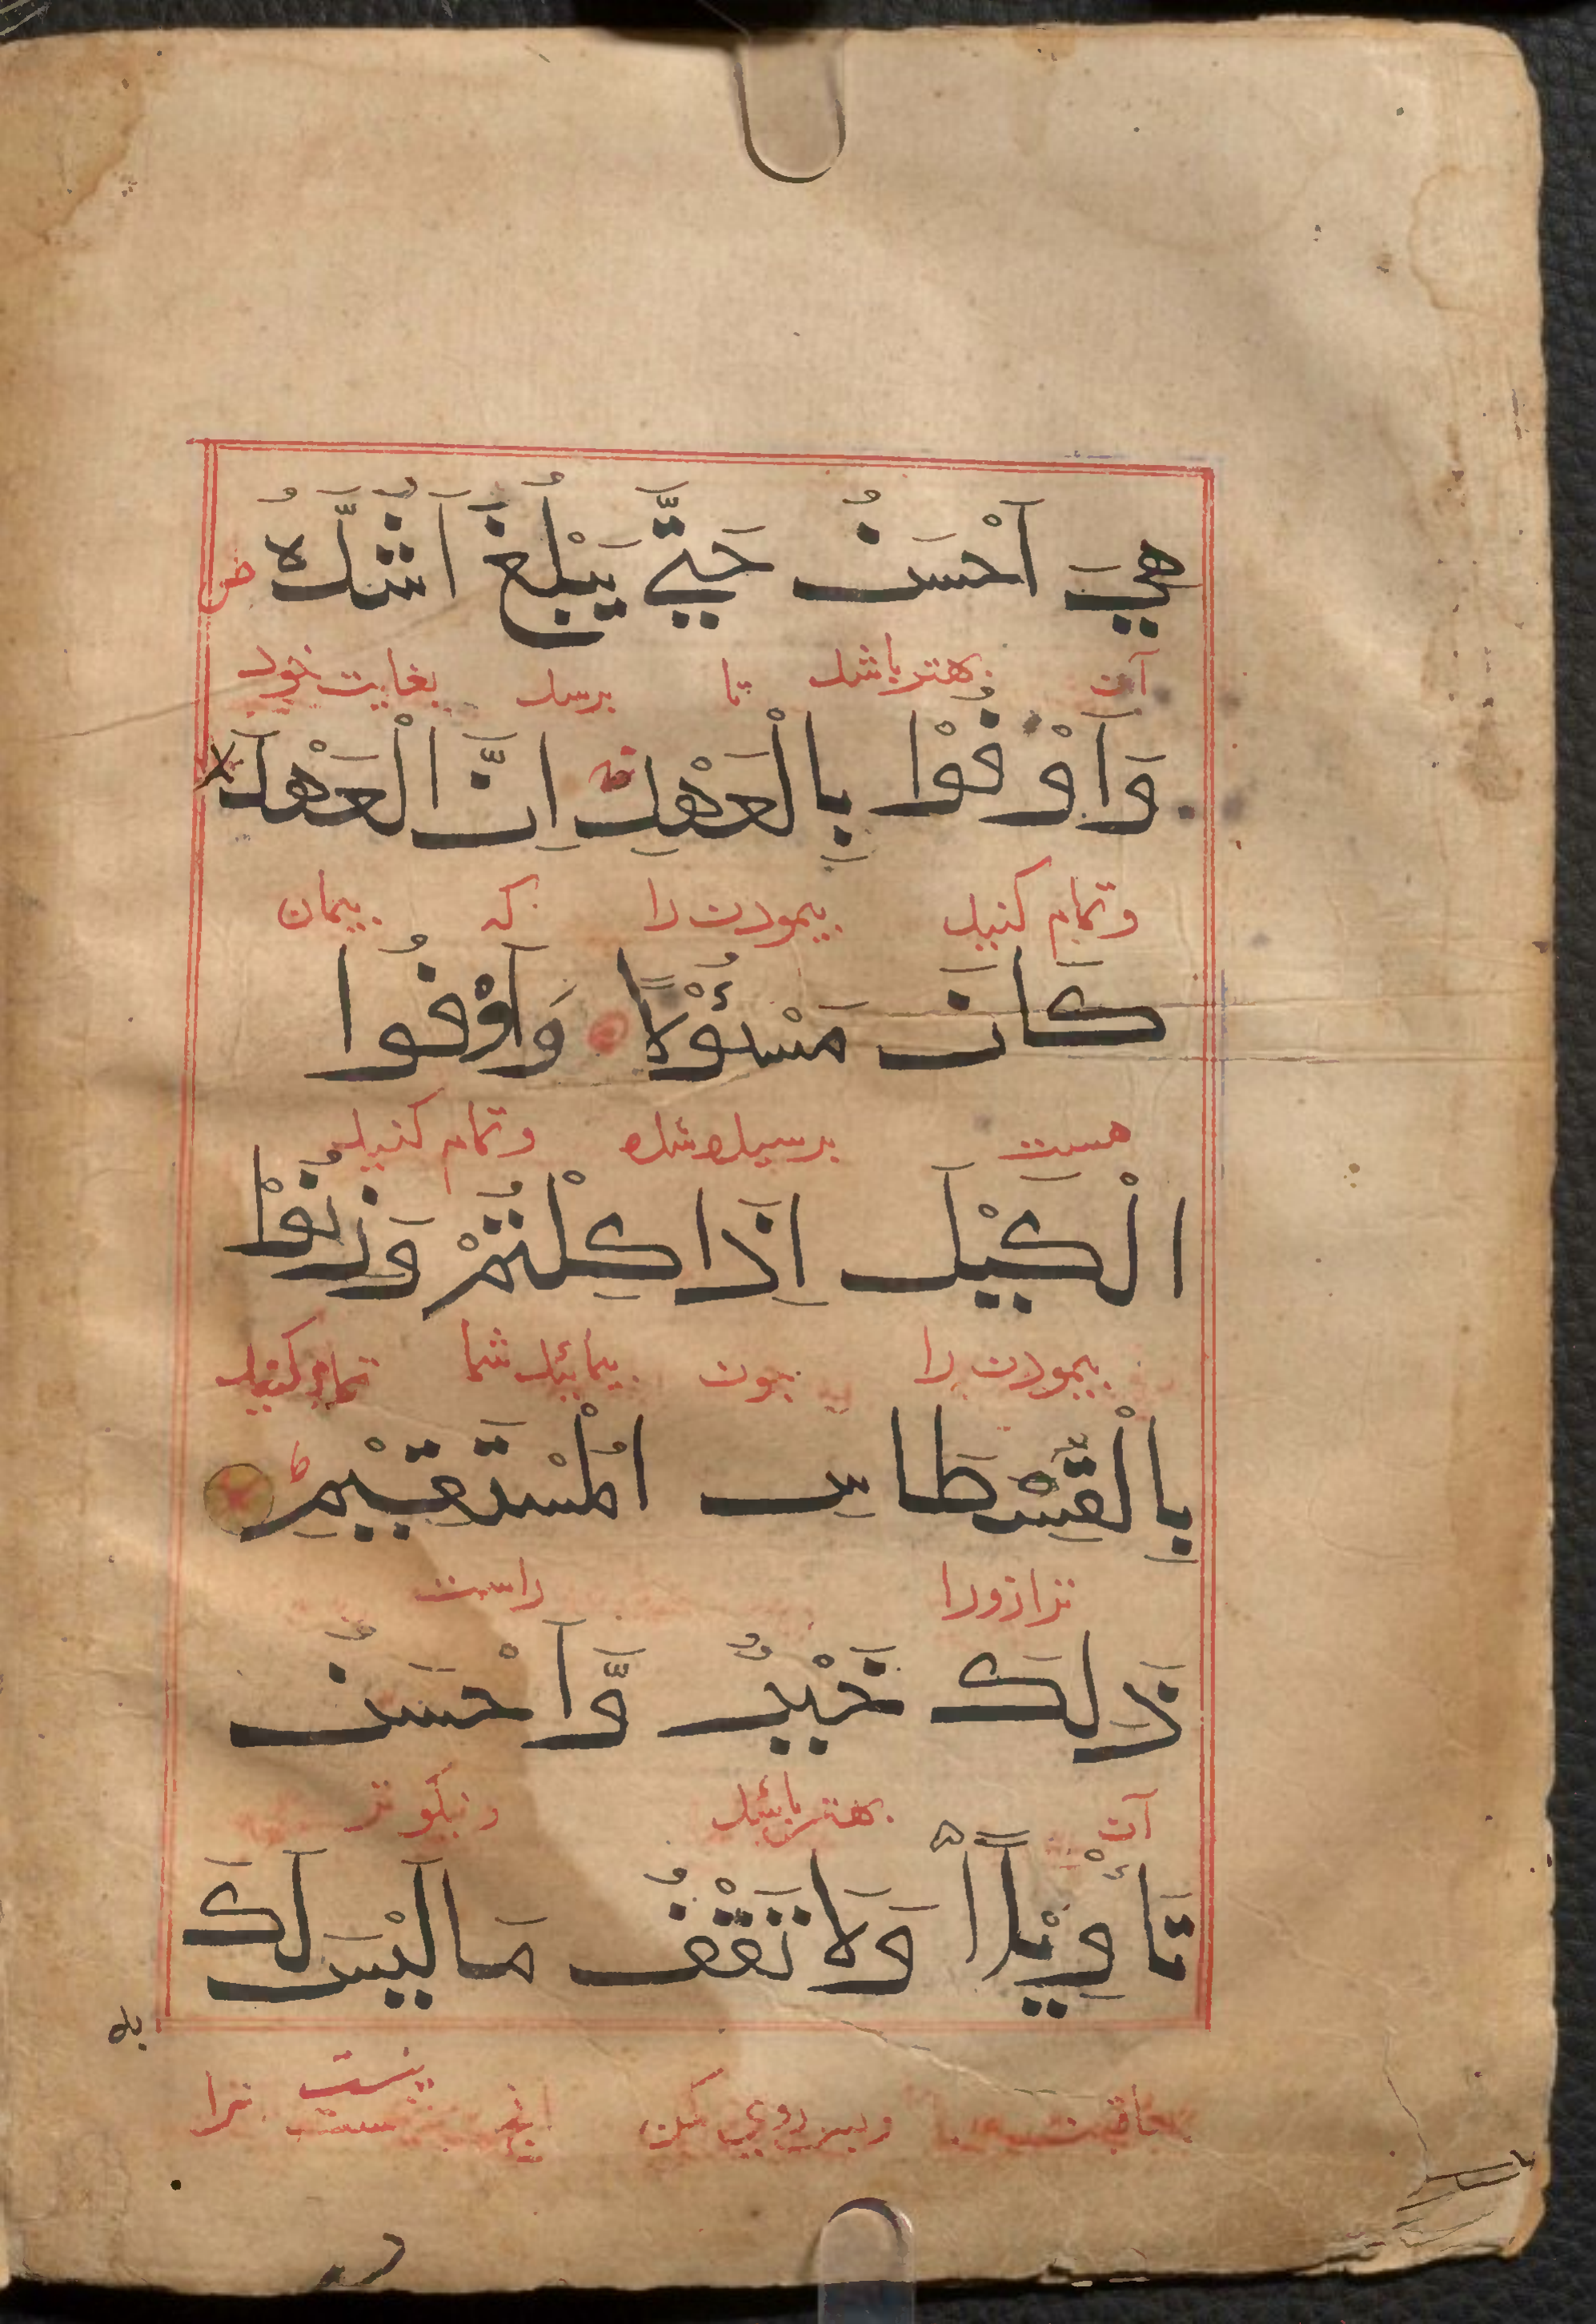 هِيَ اَحْسَنُ حَتّٰى يَبْلُغَ اَشُدَّهُ ص
آن بهتر باشد تا برسد بغایت خود
وَاَوْفُوْا بِالْعَهْدِ اِنَّ الْعَهْدَ لا
و تمام کنید پیمودن را که پیمان
كَانَ مَسْئُوْلًا وَاَوْفُوا
هست پرسیده شده و تمام کنید
الْكَيْلَ اِذَا كِلْتُمْ وَزِنُوْا
پیمودن را چون پیمائید شما تمام کنید
بِالْقِسْطَاسِ الْمُسْتَقِيْمِ ط
ترازو را راست
ذَالِكَ خَيْرٌ وَّاَحْسَنُ
آن بهتر باشد و نیکوتر
تَأْوِيْلًا وَلَا تَقْفُ مَا لَيْسَ لَكَ
به
عاقبت و پس روی مکن آنچ نیست ترا